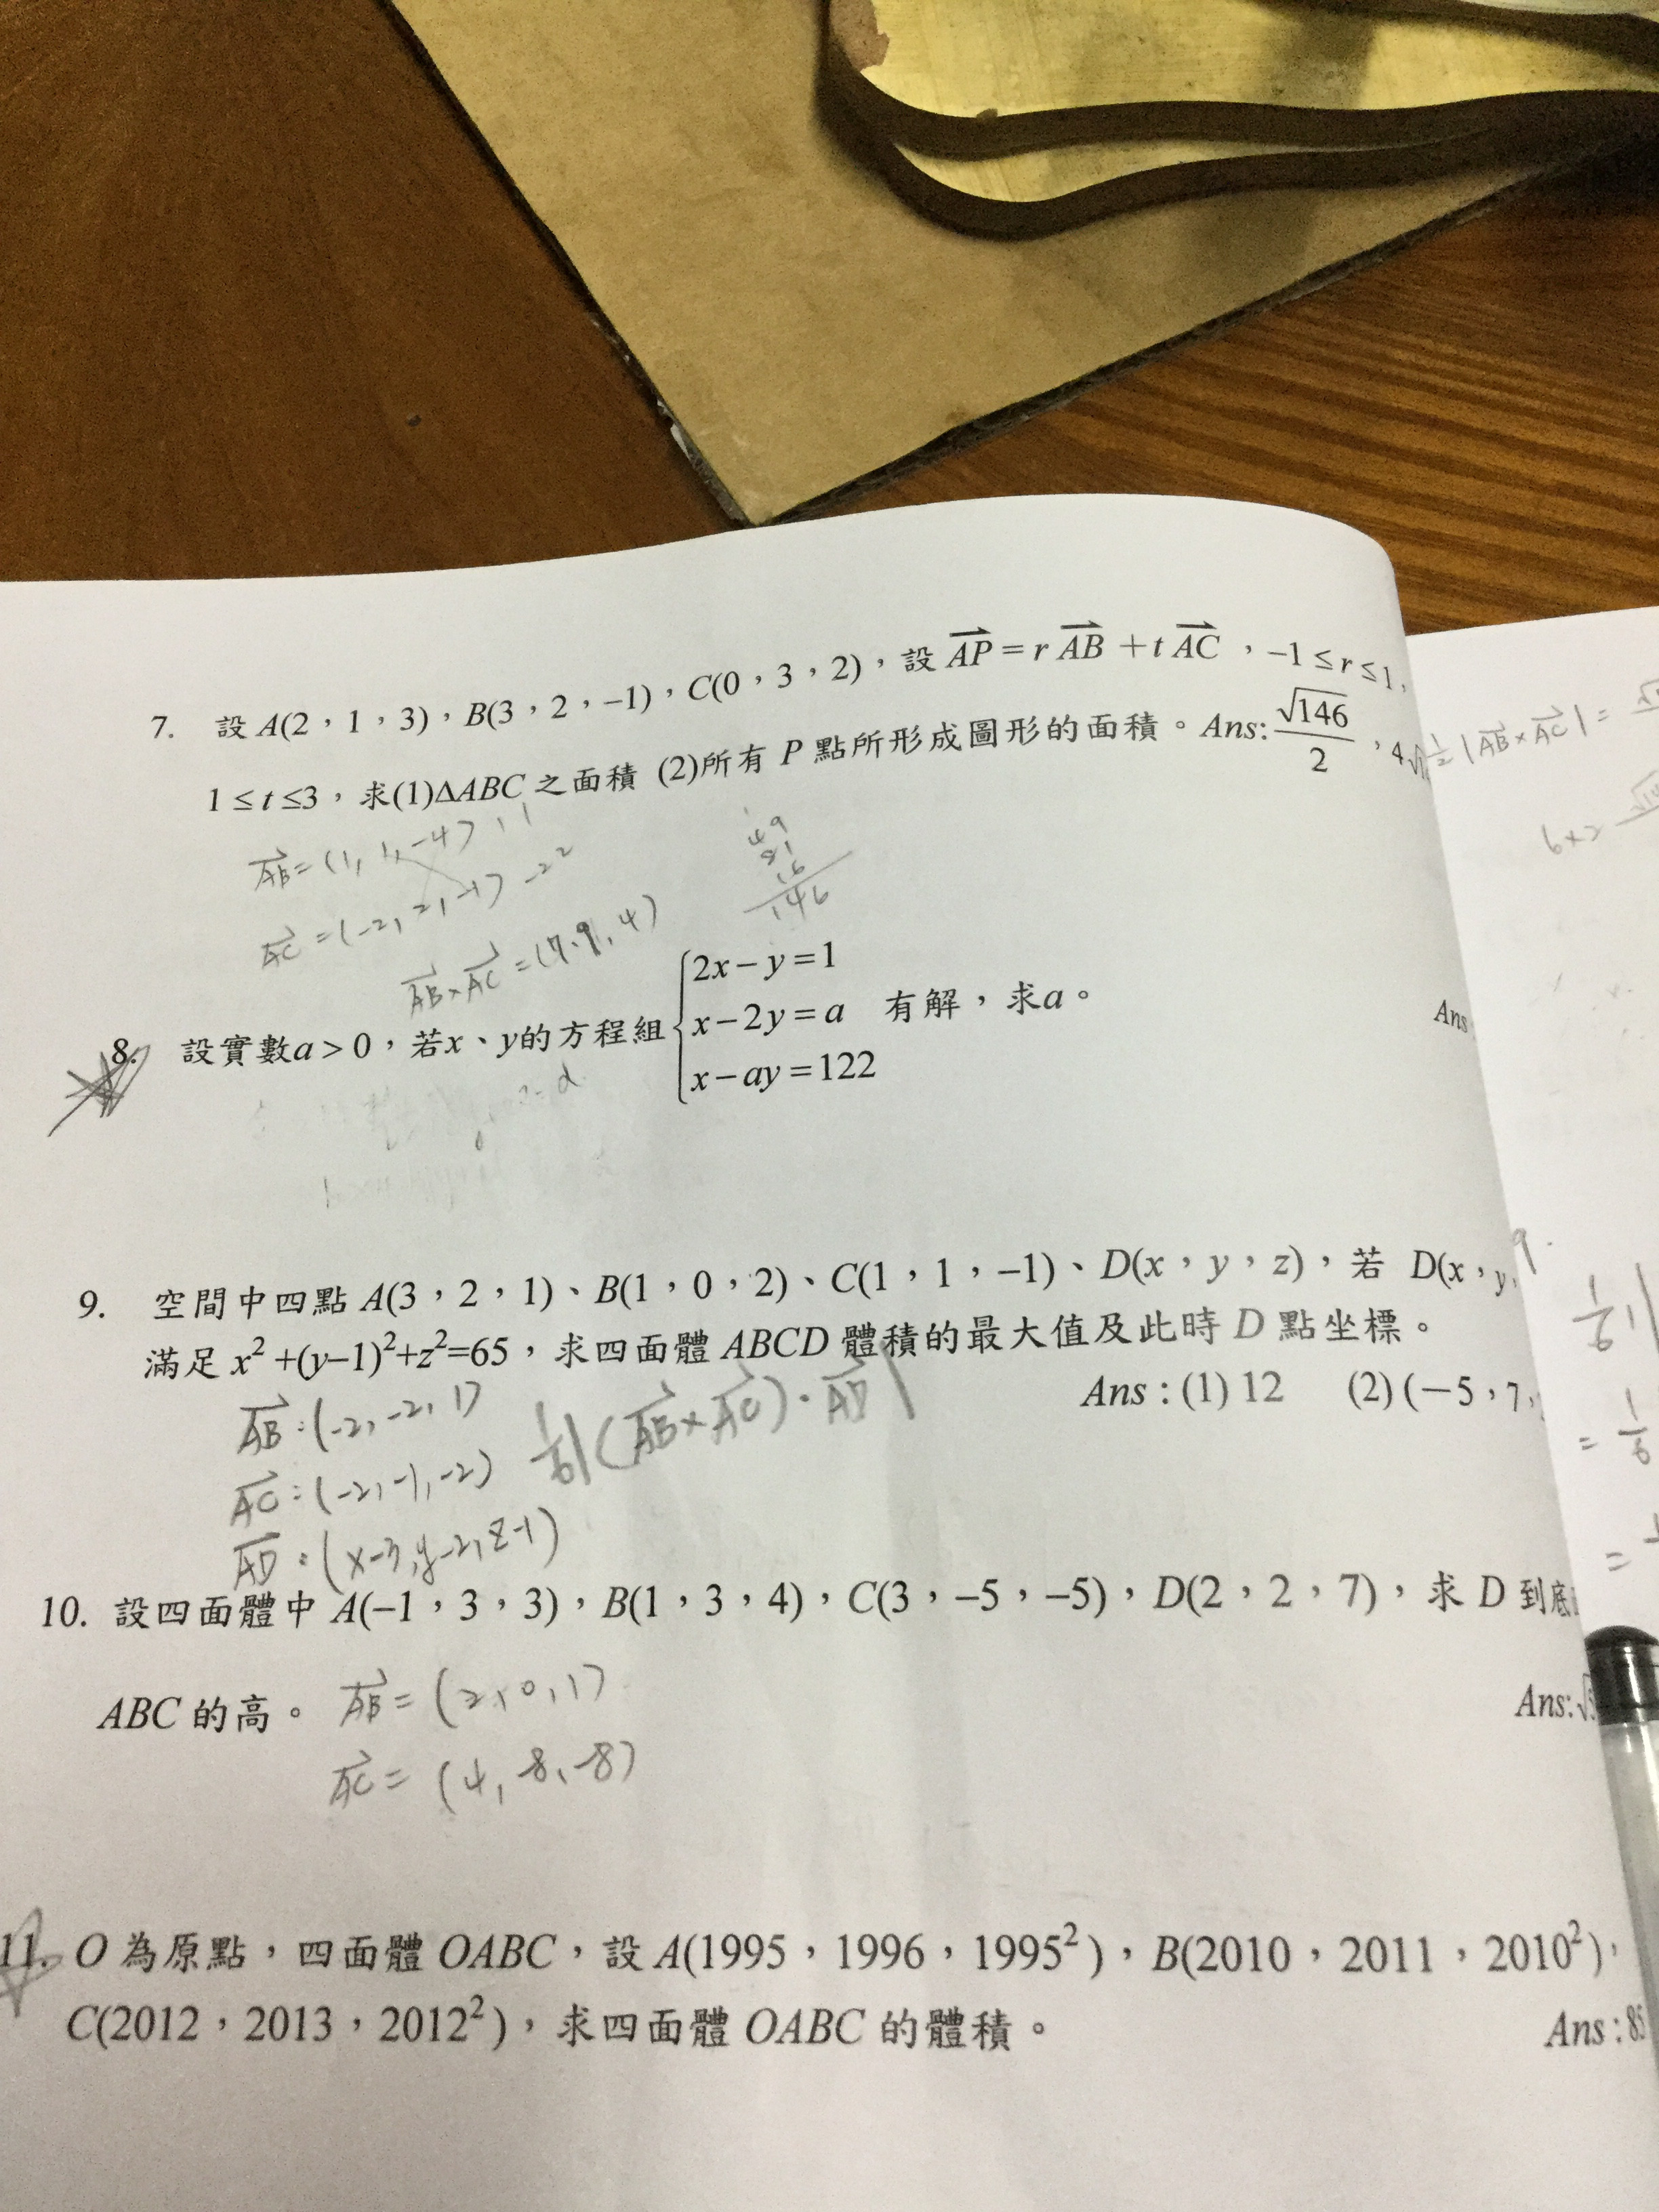 7. 設 A(2，1，3)，B(3，2，–1)，C(0，3，2)，設 $\overrightarrow{AP}$ = r $\overrightarrow{AB}$ + t $\overrightarrow{AC}$ ，–1 ≤ r ≤ 1，
1 ≤ t ≤ 3，求(1)ΔABC 之面積 (2)所有 P 點所形成圖形的面積。Ans: $\frac{\sqrt{146}}{2}$，4
$\frac{1}{2}$ |$\overrightarrow{AB}$ × $\overrightarrow{AC}$| =
$\overrightarrow{AB}$ = (1, 1, -4) 1 1
$\overrightarrow{AC}$ = (-2, 2, -1) -2 2
$\overrightarrow{AB}$ × $\overrightarrow{AC}$ = (7, 9, 4)
49
81
16
146
6×2
8. 設實數a > 0，若x、y的方程組 有解，求a。
2x – y = 1
x – 2y = a
x – ay = 122
Ans
9. 空間中四點 A(3，2，1)、B(1，0，2)、C(1，1，–1)、D(x，y，z)，若 D(x，y，
滿足 x² +(y–1)²+z²=65，求四面體 ABCD 體積的最大值及此時 D 點坐標。
Ans：(1) 12 (2) (–5，7，
$\overrightarrow{AB}$ : (-2, -2, 1)
$\frac{1}{6}$|($\overrightarrow{AB}$ × $\overrightarrow{AC}$) · $\overrightarrow{AD}$|
$\overrightarrow{AC}$ : (-2, -1, -2)
$\overrightarrow{AD}$ : (x-3, y-2, z-1)
$\frac{1}{6}$ |
= $\frac{1}{6}$
=
10. 設四面體中 A(–1，3，3)，B(1，3，4)，C(3，–5，–5)，D(2，2，7)，求 D 到底
ABC 的高。
Ans:√
$\overrightarrow{AB}$ = (2, 0, 1)
$\overrightarrow{AC}$ = (4, -8, -8)
11. O 為原點，四面體 OABC，設 A(1995，1996，1995²)，B(2010，2011，2010²)，
C(2012，2013，2012²)，求四面體 OABC 的體積。
Ans：85